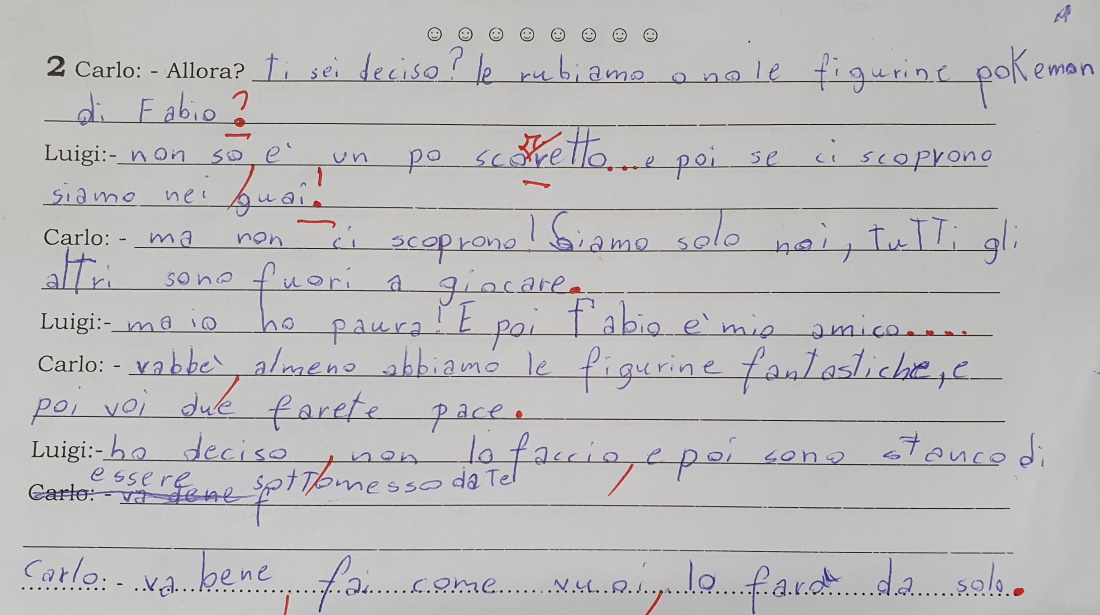 2 Carlo: - Allora? Ti sei deciso? le rubiamo o no le figurine poKemon
di Fabio?
Luigi:- non so, e' un po scorretto... e poi se ci scoprono
siamo nei guai!
Carlo: - ma non ci scoprono! Siamo solo noi, tuTTi gli
alTri sono fuori a giocare.
Luigi:- ma io ho paura! E poi Fabio e' mio amico....
Carlo: - vabbe', almeno abbiamo le figurine fantastiche, e
poi voi due farete pace.
Luigi:- ho deciso, non lo faccio, e poi sono stanco di
essere sotTomesso da Te!
Carlo: - va bene f
Carlo: - va bene, fai come vuoi, lo farò da solo.